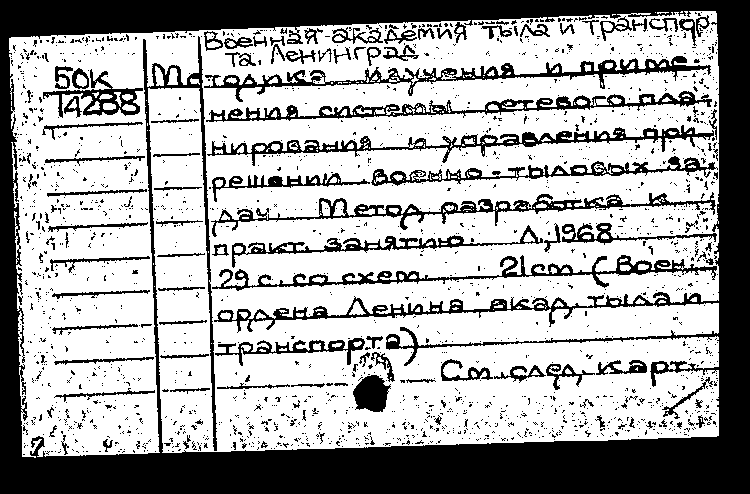 Военная академия тыла и транспор-
та. Ленинград.
50к Методика изучения и приме-
14288 нения системы сетевого пла-
нирования и управления при
решении военно-тыловых за-
дач. Метод. разработка к
практ. занятию. Л., 1968
29 с. со схем. 21 cm (Воен.
ордена Ленина акад. тыла и
транспорта).
См. след. карт.
7